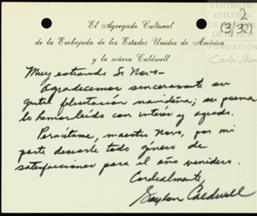 2
(3/32)
FUNDACIÓN
El Agregado Cultural
de la Embajada de los Estados Unidos de América
y la señora Caldwell
Muy estimado Sr Nervo
Agradecemos sinceramente su
gentil felicitación navideña; su poema
lo hemos leído con interés y agrado.
Permítame, maestro Nervo, por mi
parte desearle todo género de
satisfacciones para el año venidero.
Cordialmente,
Gaylon Caldwell